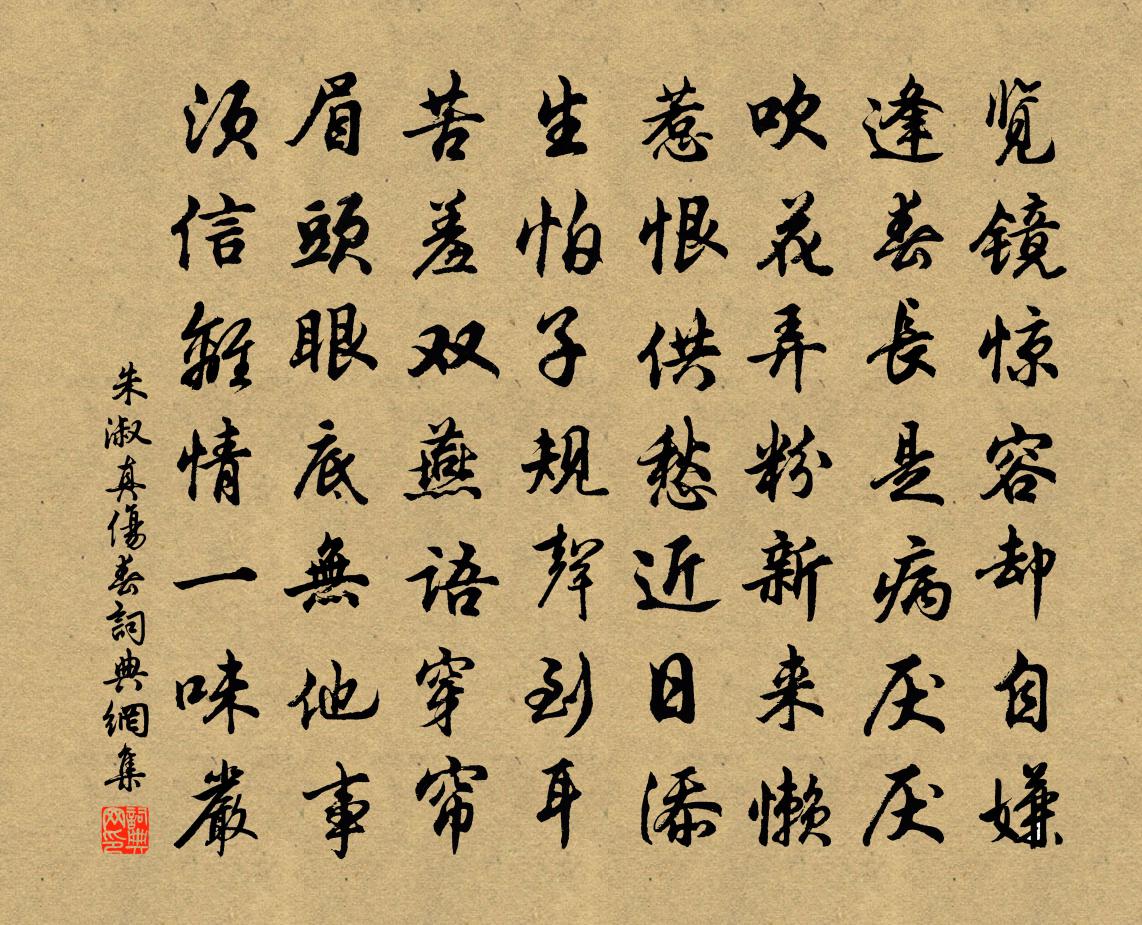 览镜惊容却自嫌
逢春長是病厌厌
吹花弄粉新来懒
惹恨供愁近日添
生怕子规聲到耳
苦羞双燕语穿帘
眉頭眼底無他事
须信離情一味嚴
朱淑真傷春詞典網集
詞典网印